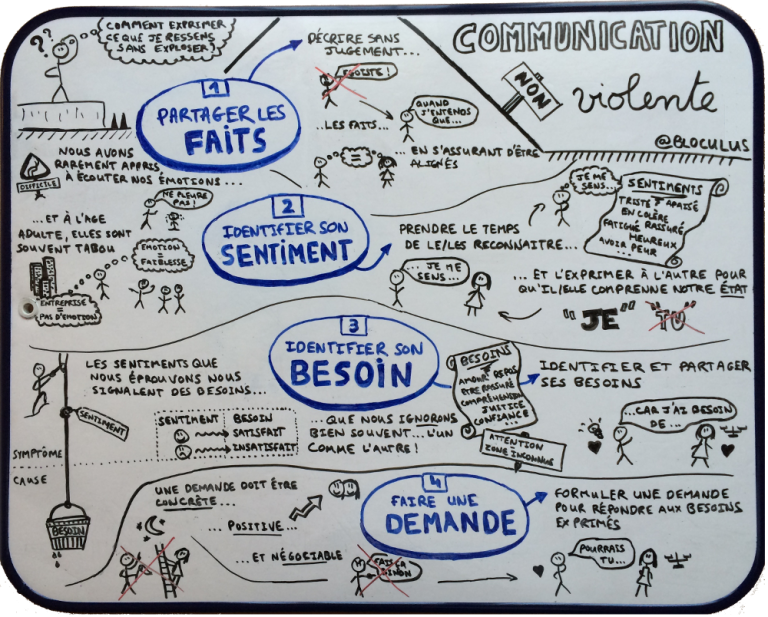 COMMENT EXPRIMER
CE QUE JE RESSENS
SANS EXPLOSER?
??
COMMUNICATION
NON
violente
@BLOCULUS
1
PARTAGER LES
FAITS
DÉCRIRE SANS
JUGEMENT...
EGOÏSTE !
QUAND
J'ENTENDS
QUE...
..LES FAITS...
=
... EN S'ASSURANT D'ÊTRE
ALIGNÉS
DIFFICILE
NOUS AVONS
RAREMENT APPRIS
À ÉCOUTER NOS ÉMOTIONS...
NE PLEURE
PAS !
...ET À L'AGE
ADULTE, ELLES SONT
SOUVENT TABOU
EMOTION
=
FAIBLESSE
ENTREPRISE
=
PAS D'EMOTION
2
IDENTIFIER SON
SENTIMENT
PRENDRE LE TEMPS
DE LE/LES RECONNAITRE...
JE ME
SENS...
SENTIMENTS
TRISTE APAISÉ
EN COLÈRE
FATIGUÉ RASSURÉ
HEUREUX
AVOIR PEUR
...
... JE ME
SENS...
... ET L'EXPRIMER À L'AUTRE POUR
QU'IL/ELLE COMPRENNE NOTRE ÉTAT
"JE" "TU"
3
IDENTIFIER SON
BESOIN
LES SENTIMENTS QUE
NOUS ÉPROUVONS NOUS
SIGNALENT DES BESOINS...
SENTIMENT
SYMPTÔME
CAUSE
BESOIN
SENTIMENT BESOIN
SATISFAIT
INSATISFAIT
...QUE NOUS IGNORONS
BIEN SOUVENT...L'UN
COMME L'AUTRE !
BESOINS
AMOUR REPOS
ETRE RASSURÉ
COMPRÉHENSION
JUSTICE
CONFIANCE
...
ATTENTION
ZONE INCONNUE
IDENTIFIER ET PARTAGER
SES BESOINS
...CAR J'AI BESOIN
DE...
4
FAIRE UNE
DEMANDE
UNE DEMANDE DOIT ÊTRE
CONCRÈTE...
... POSITIVE...
... ET NÉGOCIABLE
FAIS ÇA
SINON
FORMULER UNE DEMANDE
POUR RÉPONDRE AUX BESOINS
EXPRIMÉS
POURRAIS
TU...